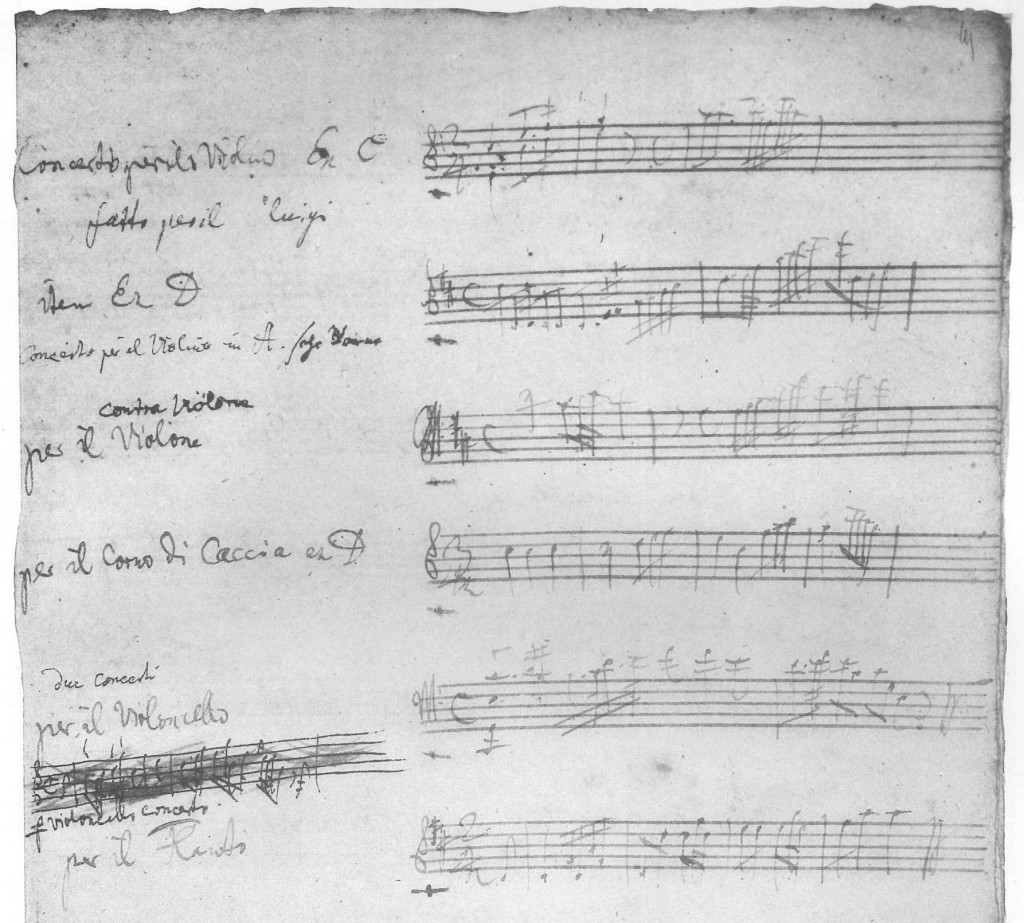 Concerto per il Violino Ex C
fatto per il luigi
item Ex D
Concerto per il Violino in A.
contra Violone
per il Violone
per il Corno di Caccia ex D
due concerti
per il Violoncello
violoncello concerto
per il Flauto